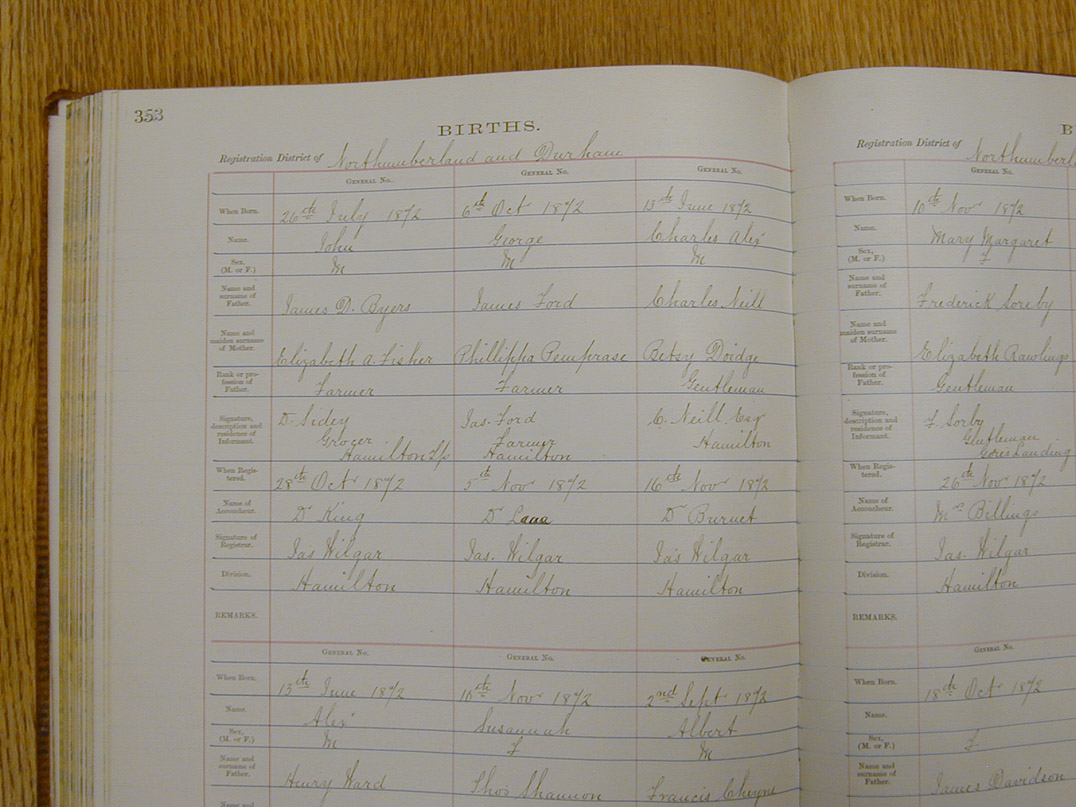 353
BIRTHS.
Registration District of Northumberland and Durham
GENERAL No. GENERAL No. GENERAL No.
When Born. 26th July 1872 6th Oct 1872 13th June 1872
Name. John George Charles Alex
Sex, (M. or F.) M M M
Name and surname of Father. James D. Byers James Ford Charles Neill
Name and maiden surname of Mother. Elizabeth A. Fisher Phillippa Pemprase Betsy Doidge
Rank or profession of Father. Farmer Farmer Gentleman
Signature, description and residence of Informant. D. Sidey Jas. Ford C. Neill Esq
Grocer Farmer Hamilton
Hamilton T/p Hamilton
When Registered. 28th Oct 1872 5th Nov 1872 16th Nov 1872
Name of Accoucheur. Dr King Dr Dr Burnet
Signature of Registrar. Jas Wilgar Jas. Wilgar Jas Wilgar
Division. Hamilton Hamilton Hamilton
REMARKS.
GENERAL No. GENERAL No. GENERAL No.
When Born. 13th June 1872 10th Nov 1872 2nd Sept 1872
Name. Alex Susannah Albert
Sex, (M. or F.) M F M
Name and surname of Father. Henry Ward Thos Shannon Francis Cheyne
Name and
B
Registration District of
GENERAL No.
When Born. 10th Nov 1872
Name. Mary Margaret
Sex, (M. or F.) F
Name and surname of Father. Frederick Soreby
Name and maiden surname of Mother. Elizabeth Rawlings
Rank or profession of Father. Gentleman
Signature, description and residence of Informant. F Sorby
Gentleman
Gores Landing
When Registered. 26th Nov 1872
Name of Accoucheur. Mrs Billings
Signature of Registrar. Jas. Wilgar
Division. Hamilton
REMARKS.
GENERAL No.
When Born. 18th Oct 1872
Name.
Sex, (M. or F.) F
Name and surname of Father. James Davidson
Name and